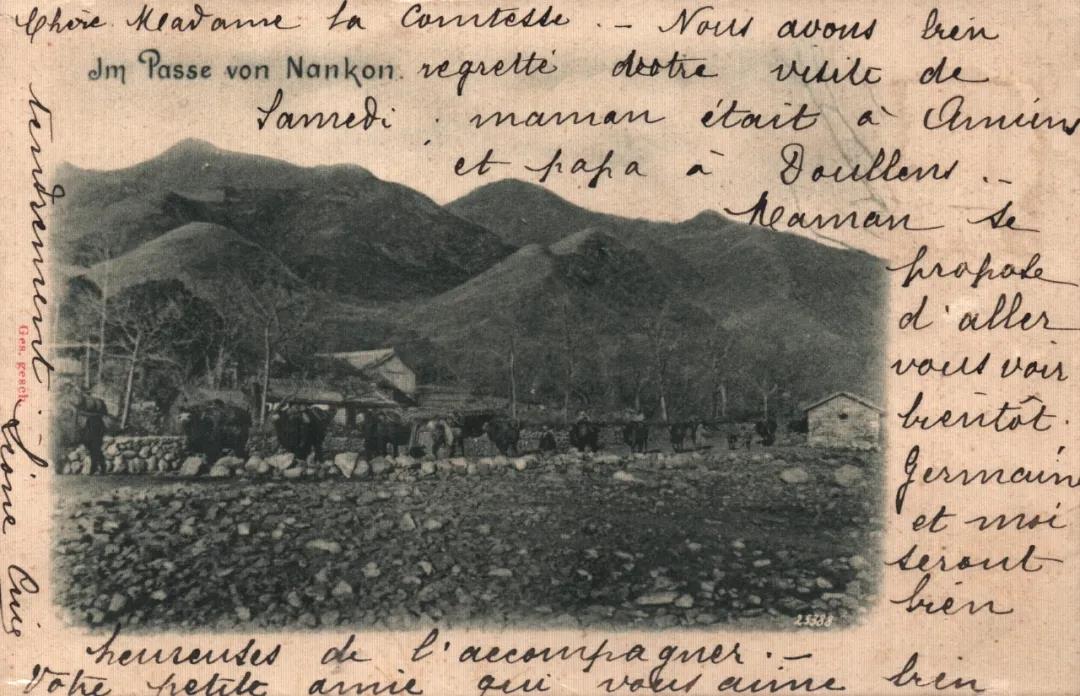 Chère Madame la Comtesse. – Nous avons bien
Im Passe von Nankon.
regretté votre visite de
Samedi. maman était à Amiens
et papa à Doullens. –
Maman se
propose
d'aller
vous voir
bientôt.
Germaine
et moi
seront
bien
heureuses de l'accompagner. –
Votre petite amie qui vous aime bien
tendrement
Ges. gesch.
25388